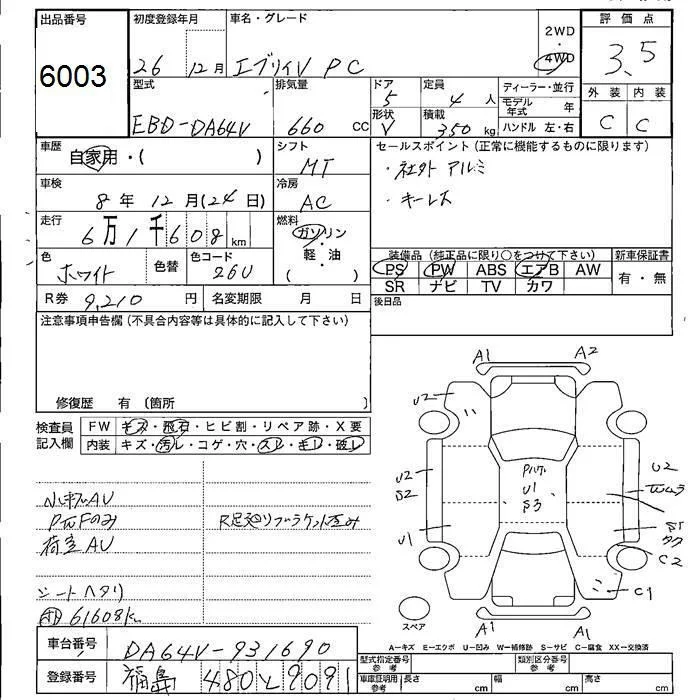 出品番号
6003
初度登録年月
26 12月
車名・グレード
エブリィV PC
2WD
・
4WD
評価点
3.5
外装 内装
C C
型式
EBD-DA64V
排気量
660 cc
ドア
5
形状
V
定員
4 人
積載
350 kg
ディーラー・並行
モデル年式 年
ハンドル 左・右
車歴
自家用・( )
シフト
MT
セールスポイント(正常に機能するものに限ります)
・社外アルミ
・キーレス
車検
8年12月(24日)
冷房
AC
走行
6万1千608km
燃料
ガソリン
・
軽・油
( )
色
ホワイト
色替
色コード
26U
装備品(純正品に限り○をつけて下さい)
PS PW ABS エアB AW
SR ナビ TV カワ
新車保証書
有・無
R券 9,210 円
名変期限 月 日
後日品
注意事項申告欄(不具合内容等は具体的に記入して下さい)
修復歴 有〔箇所 〕
検査員記入欄
FW キズ・飛石・ヒビ割・リペア跡・X要
内装 キズ・汚レ・コゲ・穴・スレ・キレ・破レ
AU
PWFのみ
荷室AU
シートヘタリ
61608K
A1 A2
U2
U2
S2
U1
U1
S3
U2
S1
C2
C1
A1 A1
スペア
A-キズ E-エクボ U-凹み W-補修跡 S-サビ C-腐食 XX-交換済
車台番号
DA64V-931690
登録番号
福島 480 9091
型式指定番号
参考
類別区分番号
参考
車庫証明用
参考
長さ cm
幅 cm
高さ cm